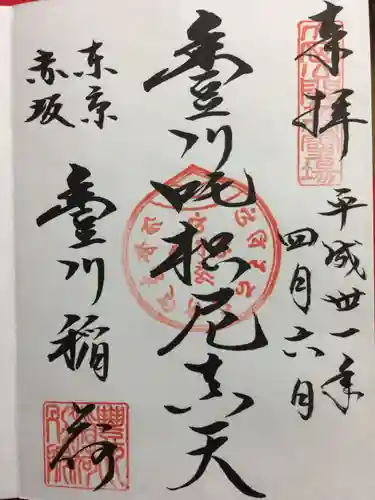 来拝
平成卅一年
四月六日
豊川吒枳尼真天
東京
赤坂
豊川稲荷